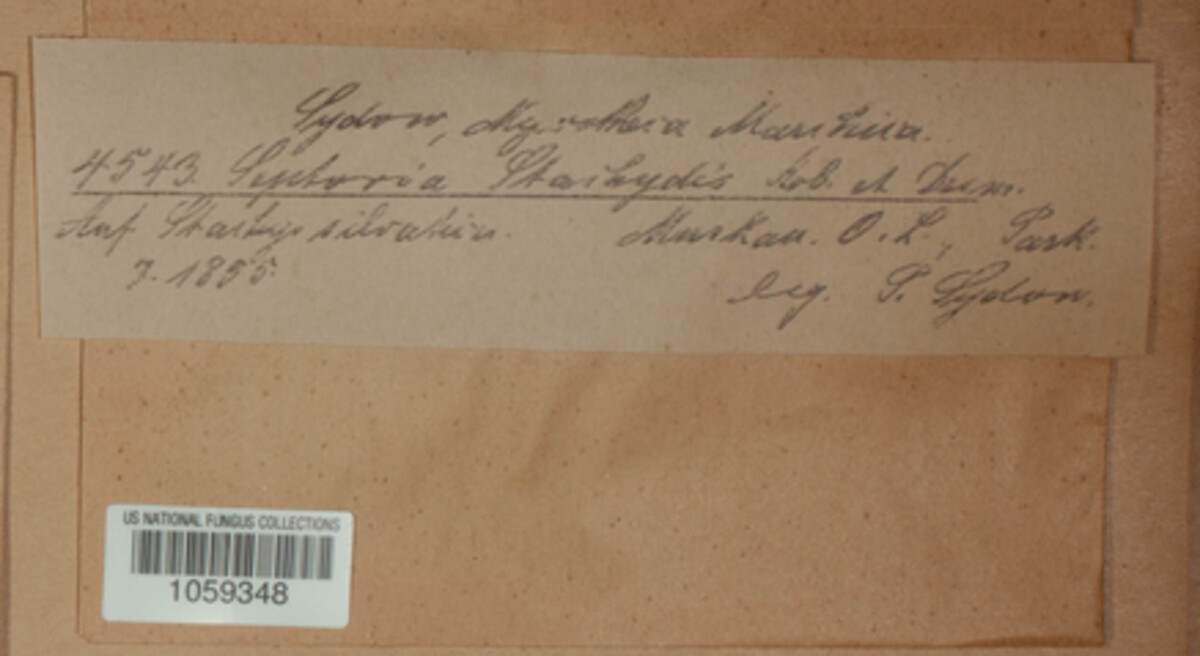 Sydow, Mycotheca Marchica.
4543. Septoria Stachydis Rob. et Desm.
Auf Stachys silvatica. Muskau. O. L., Park.
7. 1895. leg. P. Sydow.
US NATIONAL FUNGUS COLLECTIONS
1059348